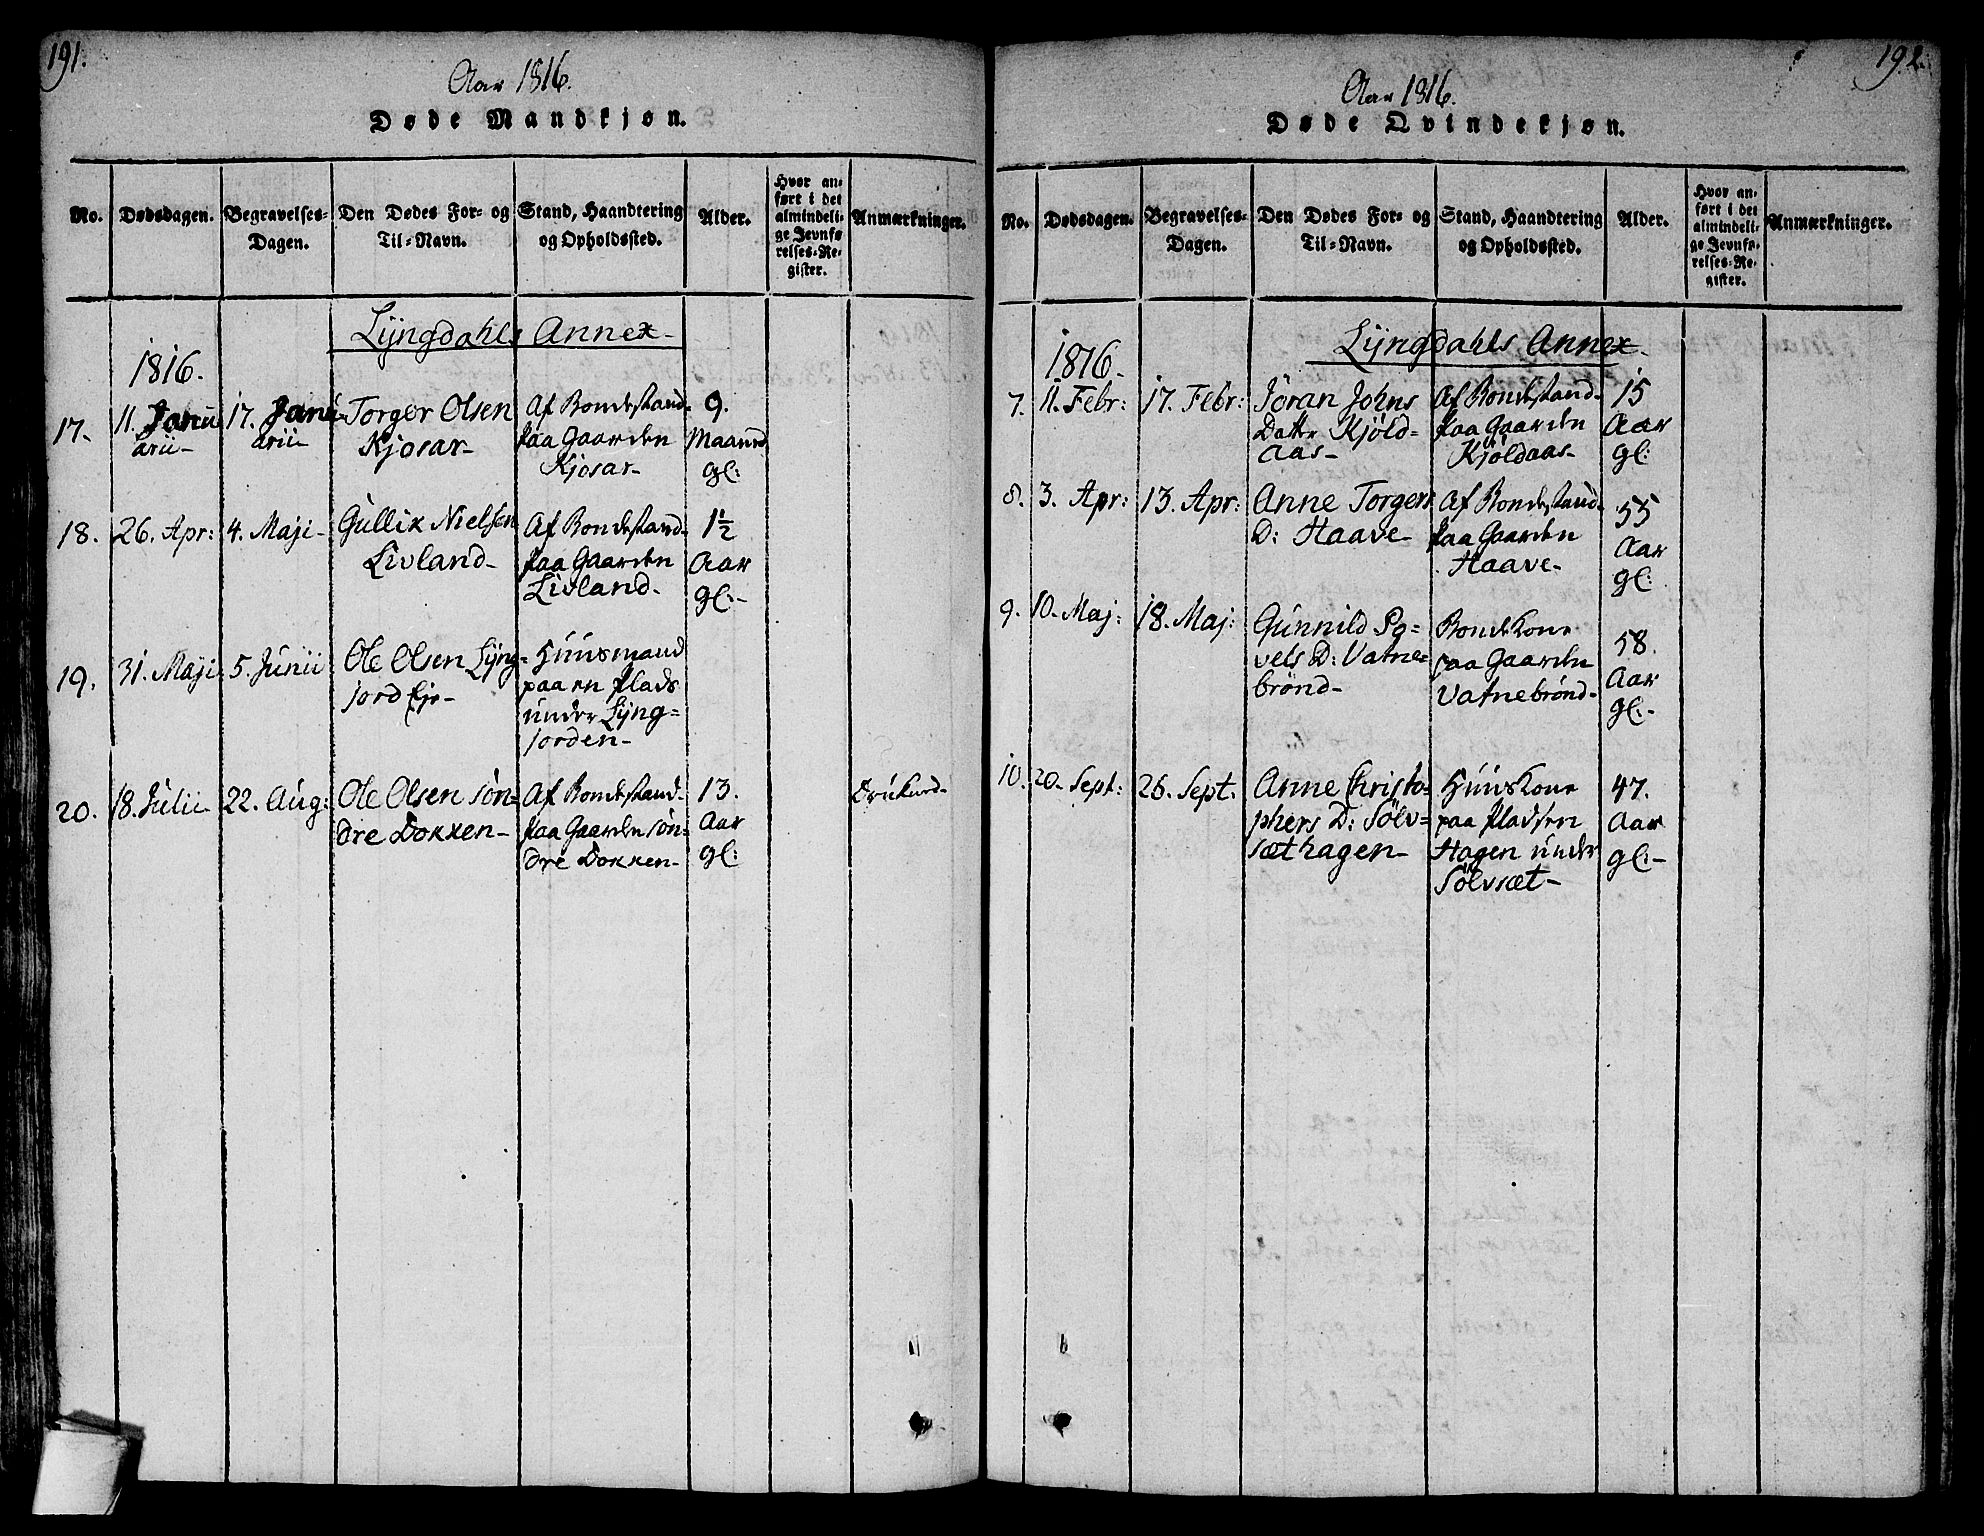 191.
Aar 1816.
Døde Mandkjøn.
No.
Dødsdagen.
Begravelses-
Dagen.
Den Dødes For- og
Til-Navn.
Stand, Haandtering
og Opholdssted.
Alder.
Hvor an-
ført i det
almindeli-
ge Jevnfø-
relses-Re-
gister.
Anmærkninger.
Lyngdahls Annex-
1816.
17.
11. Janu
arii-
17. Janu-
arii-
Torger Olsen
Kjosar-
Af Bondestand-
paa Gaarden
Kjosar-
9.
Maaned
gl:
18.
26. Apr:
4. Maji-
Gullik Nielsen
Livland-
Af Bondestand-
paa Gaarden
Livland-
1½
Aar
gl:-
19.
31. Maji
5. Junii
Ole Olsen Lyng-
jord
Huusmand
paa en Plads
under Lyng-
jorden-
20.
18. Julii-
22. Aug:
Ole Olsen søn-
dre Dokken-
Af Bondestand-
paa Gaarden søn-
dre Dokken-
13.
Aar
gl:
Drukned-
192.
Aar 1816.
Døde Qvindekjøn.
No.
Dødsdagen.
Begravelses-
Dagen.
Den Dødes For- og
Til-Navn.
Stand, Haandtering
og Opholdssted.
Alder.
Hvor an-
ført i det
almindeli-
ge Jevnfø-
relses-Re-
gister.
Anmærkninger.
Lyngdahls Annex.
1816.
7.
11. Febr:
17. Febr:
Jöran Johns
Datter Kjöld-
aas-
Af Bondestand-
paa Gaarden
Kjöldaas-
15
Aar
gl:
8.
3. Apr:
13. Apr:
Anne Torgers
D: Haave-
Af Bondestand-
paa Gaarden
Haave-
55
Aar
gl:
9.
10. Maj:
18. Maj:
Gunnild Po-
vels D: Vatne-
brönd-
Bondekone
paa Gaarden
Vatnebrönd-
58.
Aar
gl:-
10.
20. Sept:
26. Sept.
Anne Christo-
phers D: Sölv-
sæthagen-
Huuskone
paa Pladsen
Hagen under
Sölvsæt-
47.
Aar
gl:-